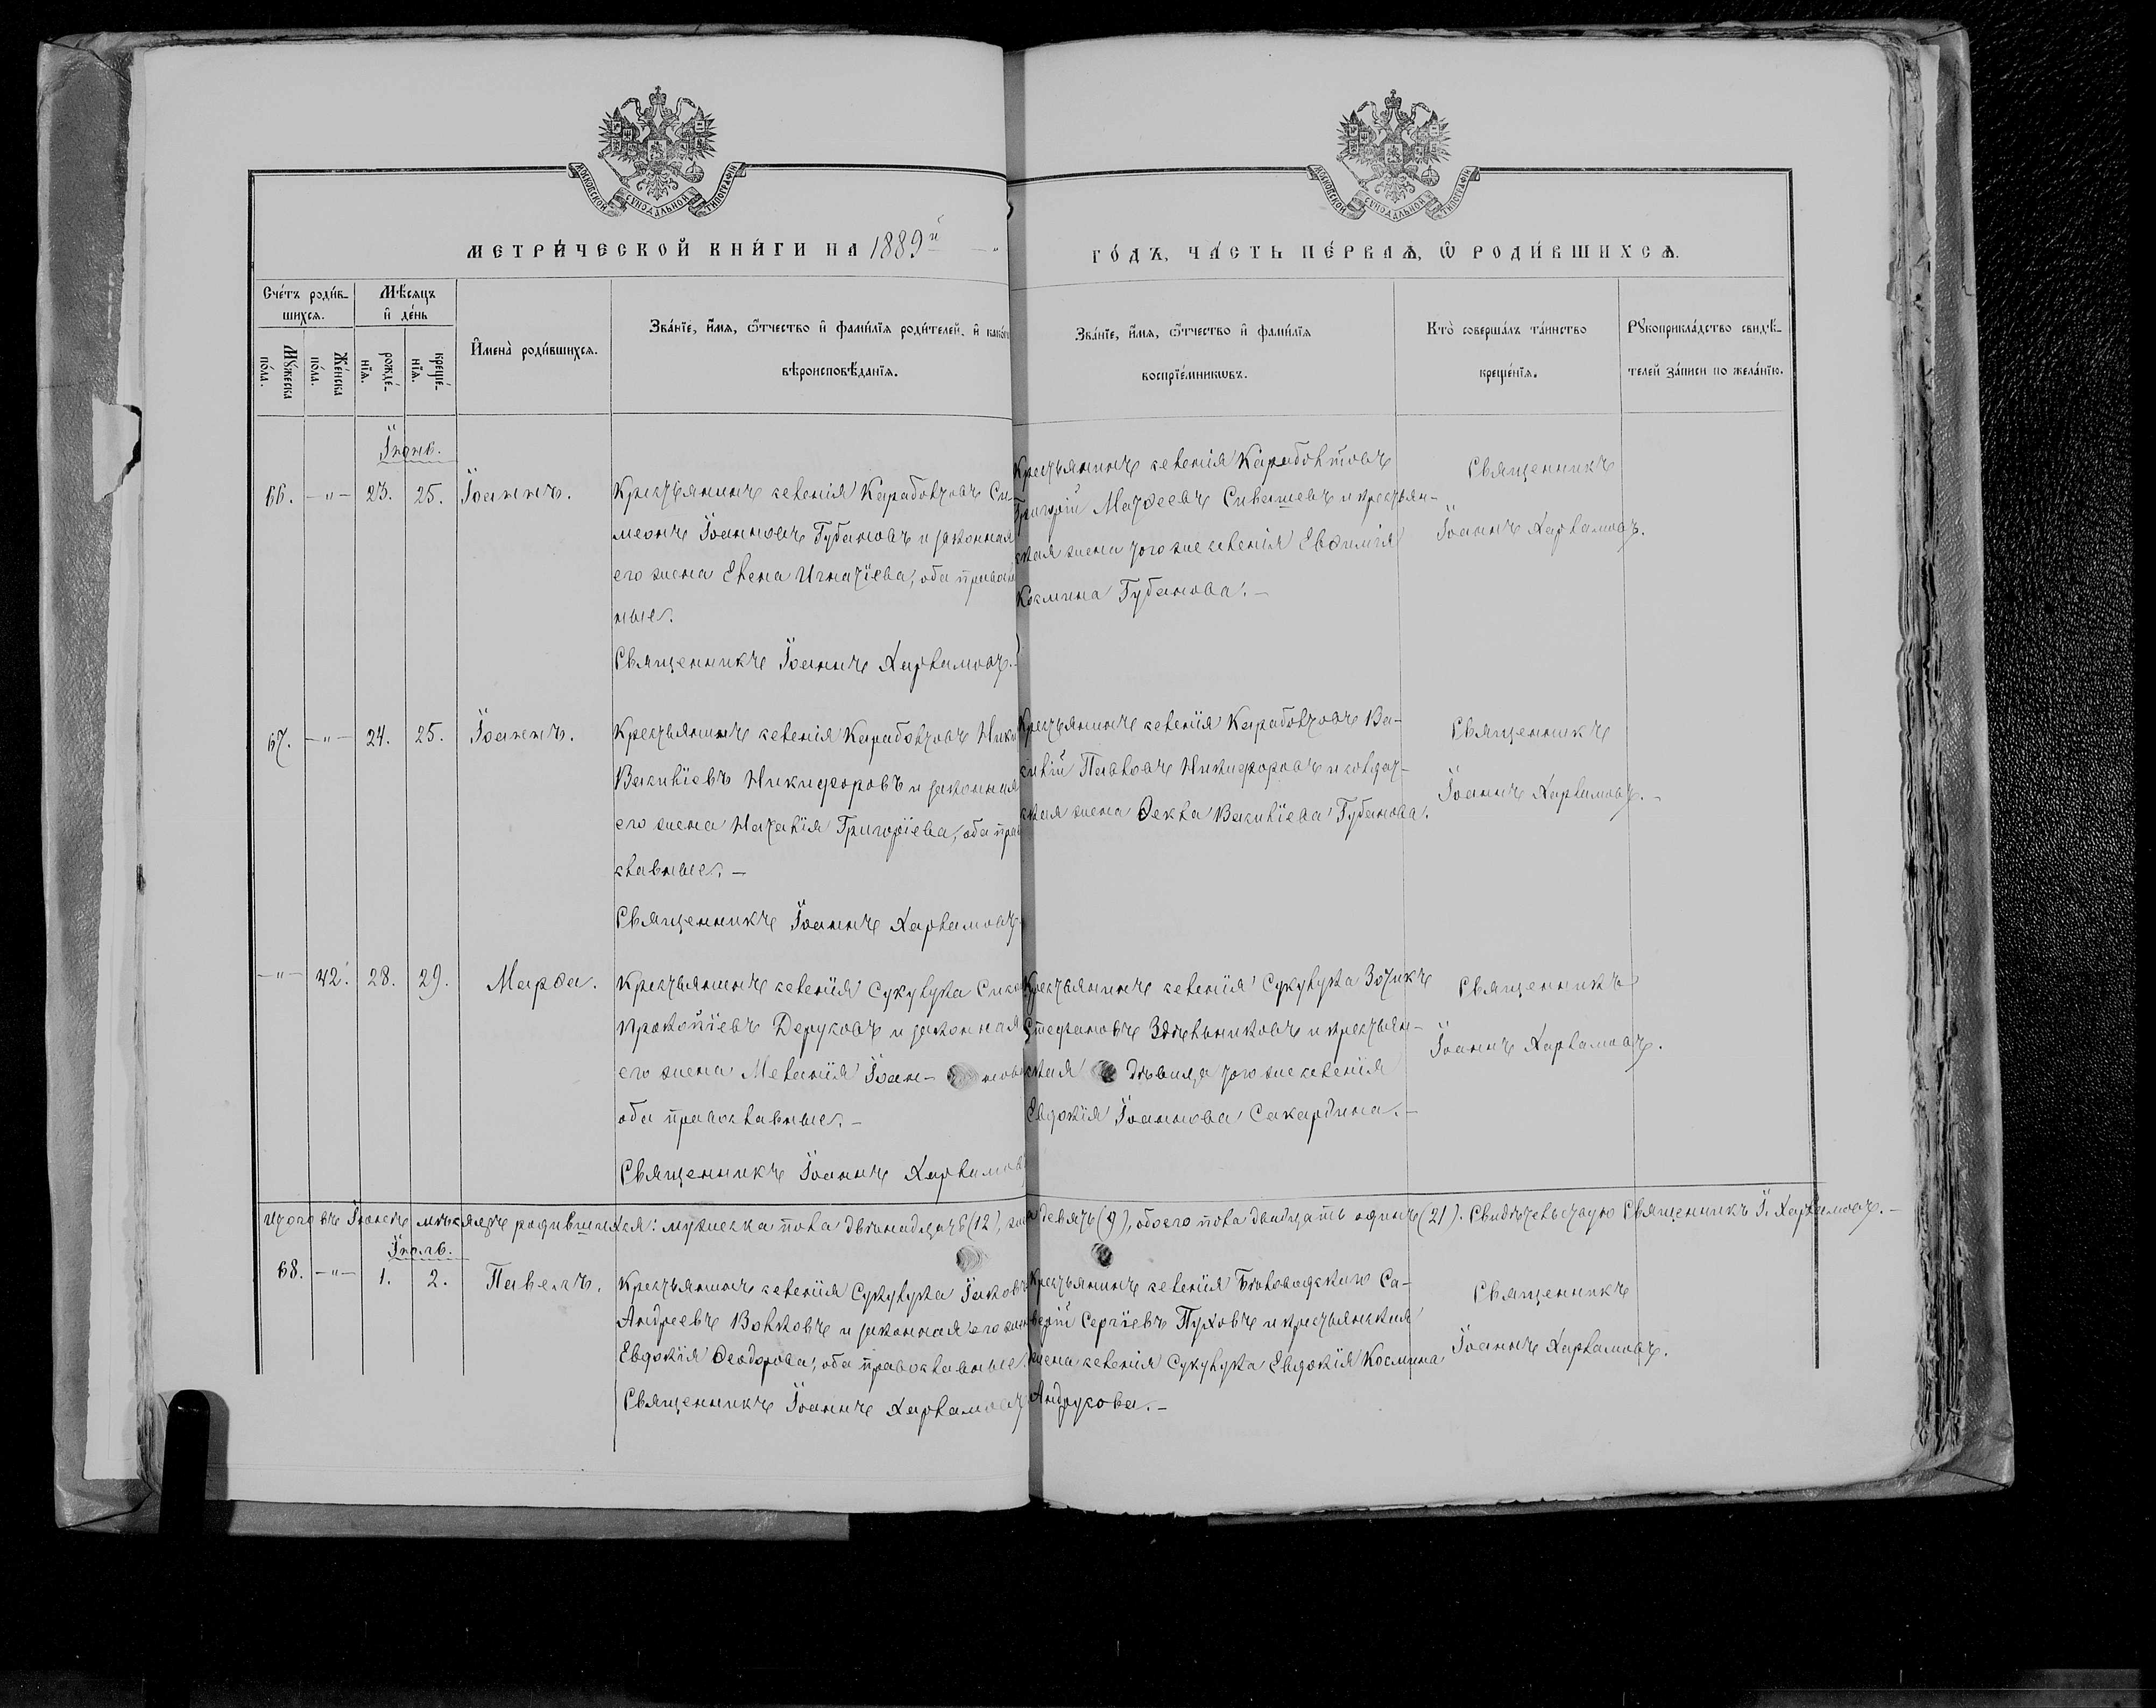 МОСКОВСКОЙ СѴНОДАЛЬНОЙ ТИПОГРАФІИ
МОСКОВСКОЙ СѴНОДАЛЬНОЙ ТИПОГРАФІИ
МЕТРИ́ЧЕСКОЙ КНИ́ГИ НА 1889й
ГО́ДЪ, ЧА́СТЬ ПЕ́РВАѦ, Ѡ РОДИ́ВШИХСѦ.
Сче́тъ роди́в-
шихся.
Мꙋ́жеска по́ла.
Же́нска по́ла.
Мѣ́сяцъ
и де́нь
рожде́-
нїя.
креще́-
нїя.
Имена̀ роди́вшихся.
Зва́нїе, имя, ѻтчество и фами́лїя роди́телей, и како́гѡ
вѣроисповѣ́данїя.
Зва́нїе, имя, ѻтчество и фами́лїя
воспрїе́мникѡвъ.
Кто̀ соверша́лъ та́инство
креще́нїя.
Рꙋкоприкла́дство свидѣ́-
телей за́писи по жела́нїю.
Іюнь.
66. -"- 23. 25. Іоаннъ.
Крестьянинъ селенія Карабоктовъ Си-
меонъ Іоанновъ Губановъ и законная
его жена Елена Игнатіева, оба православ
ные.
Священникъ Іоаннъ Харламовъ.
Крестьянинъ селенія Карабоктовъ
Григорій Матѳеевъ Сивашевъ и крестьян-
ская жена того же селенія Евѳимія
Космина Губанова. -
Священникъ
Іоаннъ Харламовъ.
67. -"- 24. 25. Іоаннъ.
Василіевъ Никифоровъ и законная
его жена Наталія Григоріева, оба прав
славные. -
Священникъ Іоаннъ Харламовъ
силій Павловъ Никифоровъ и солдат-
ская жена Ѳекла Василіева Губанова.
Священникъ
Іоаннъ Харламовъ. -
-"- 42. 28. 29. Марѳа.
Крестьянинъ селенія Сукулука
Прокопіевъ Деруковъ и законная
его жена Меланія Іоан- нова
оба православные. -
Священникъ Іоаннъ Харламовъ
Крестьянинъ селенія Сукулука Зотикъ
Стефановъ и крестьян-
ская дѣвица того же селенія
Евдокія Іоаннова Сакардина. -
Священникъ
Іоаннъ Харламовъ.
Итого въ Іюнѣ мѣсяцѣ родившихся: мужеска пола двѣнадцать (12), девять (9), обоего пола двадцать одинъ (21). Свидѣтельствую Священникъ І. Харламовъ. -
Іюль.
68. -"- 1. 2. Павелъ.
Крестьянинъ селенія Сукулука Іаковъ
Андреевъ Волковъ и законная его жена
Евдокія Ѳеодорова, оба православные.
Священникъ Іоаннъ Харламовъ
Крестьянинъ селенія Бѣловодскаго Са-
верій Сергіевъ Пуховъ и крестьянская
жена селенія Сукулука Евдокія Космина
Андрусова. -
Священникъ
Іоаннъ Харламовъ.